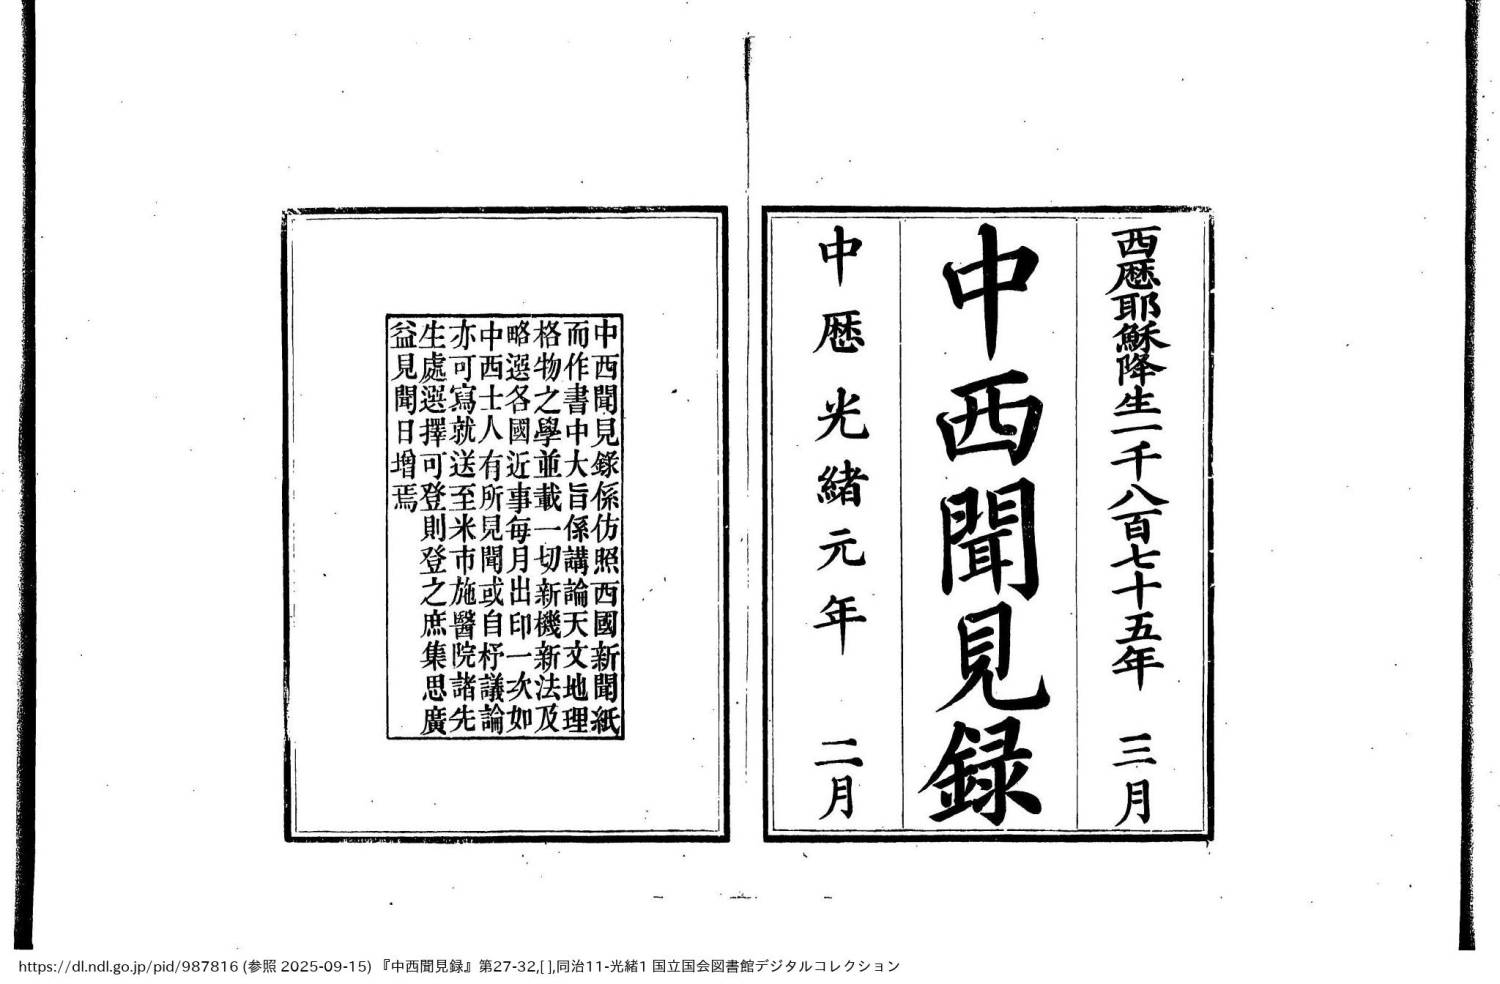 西曆耶穌降生一千八百七十五年 三月
中西聞見録
中曆光緒元年 二月
中西聞見錄係仿照西國新聞紙
而作書中大旨係講論天文地理
格物之學並載一切新機新法及
略選各國近事每月出印一次如
中西士人有所見聞或自杼議論
亦可寫就送至米市施醫院諸先
生處選擇可登則登之庶集思廣
益見聞日增焉
https://dl.ndl.go.jp/pid/987816 (参照 2025-09-15) 『中西聞見録』第27-32,[ ],同治11-光緒1 国立国会図書館デジタルコレクション